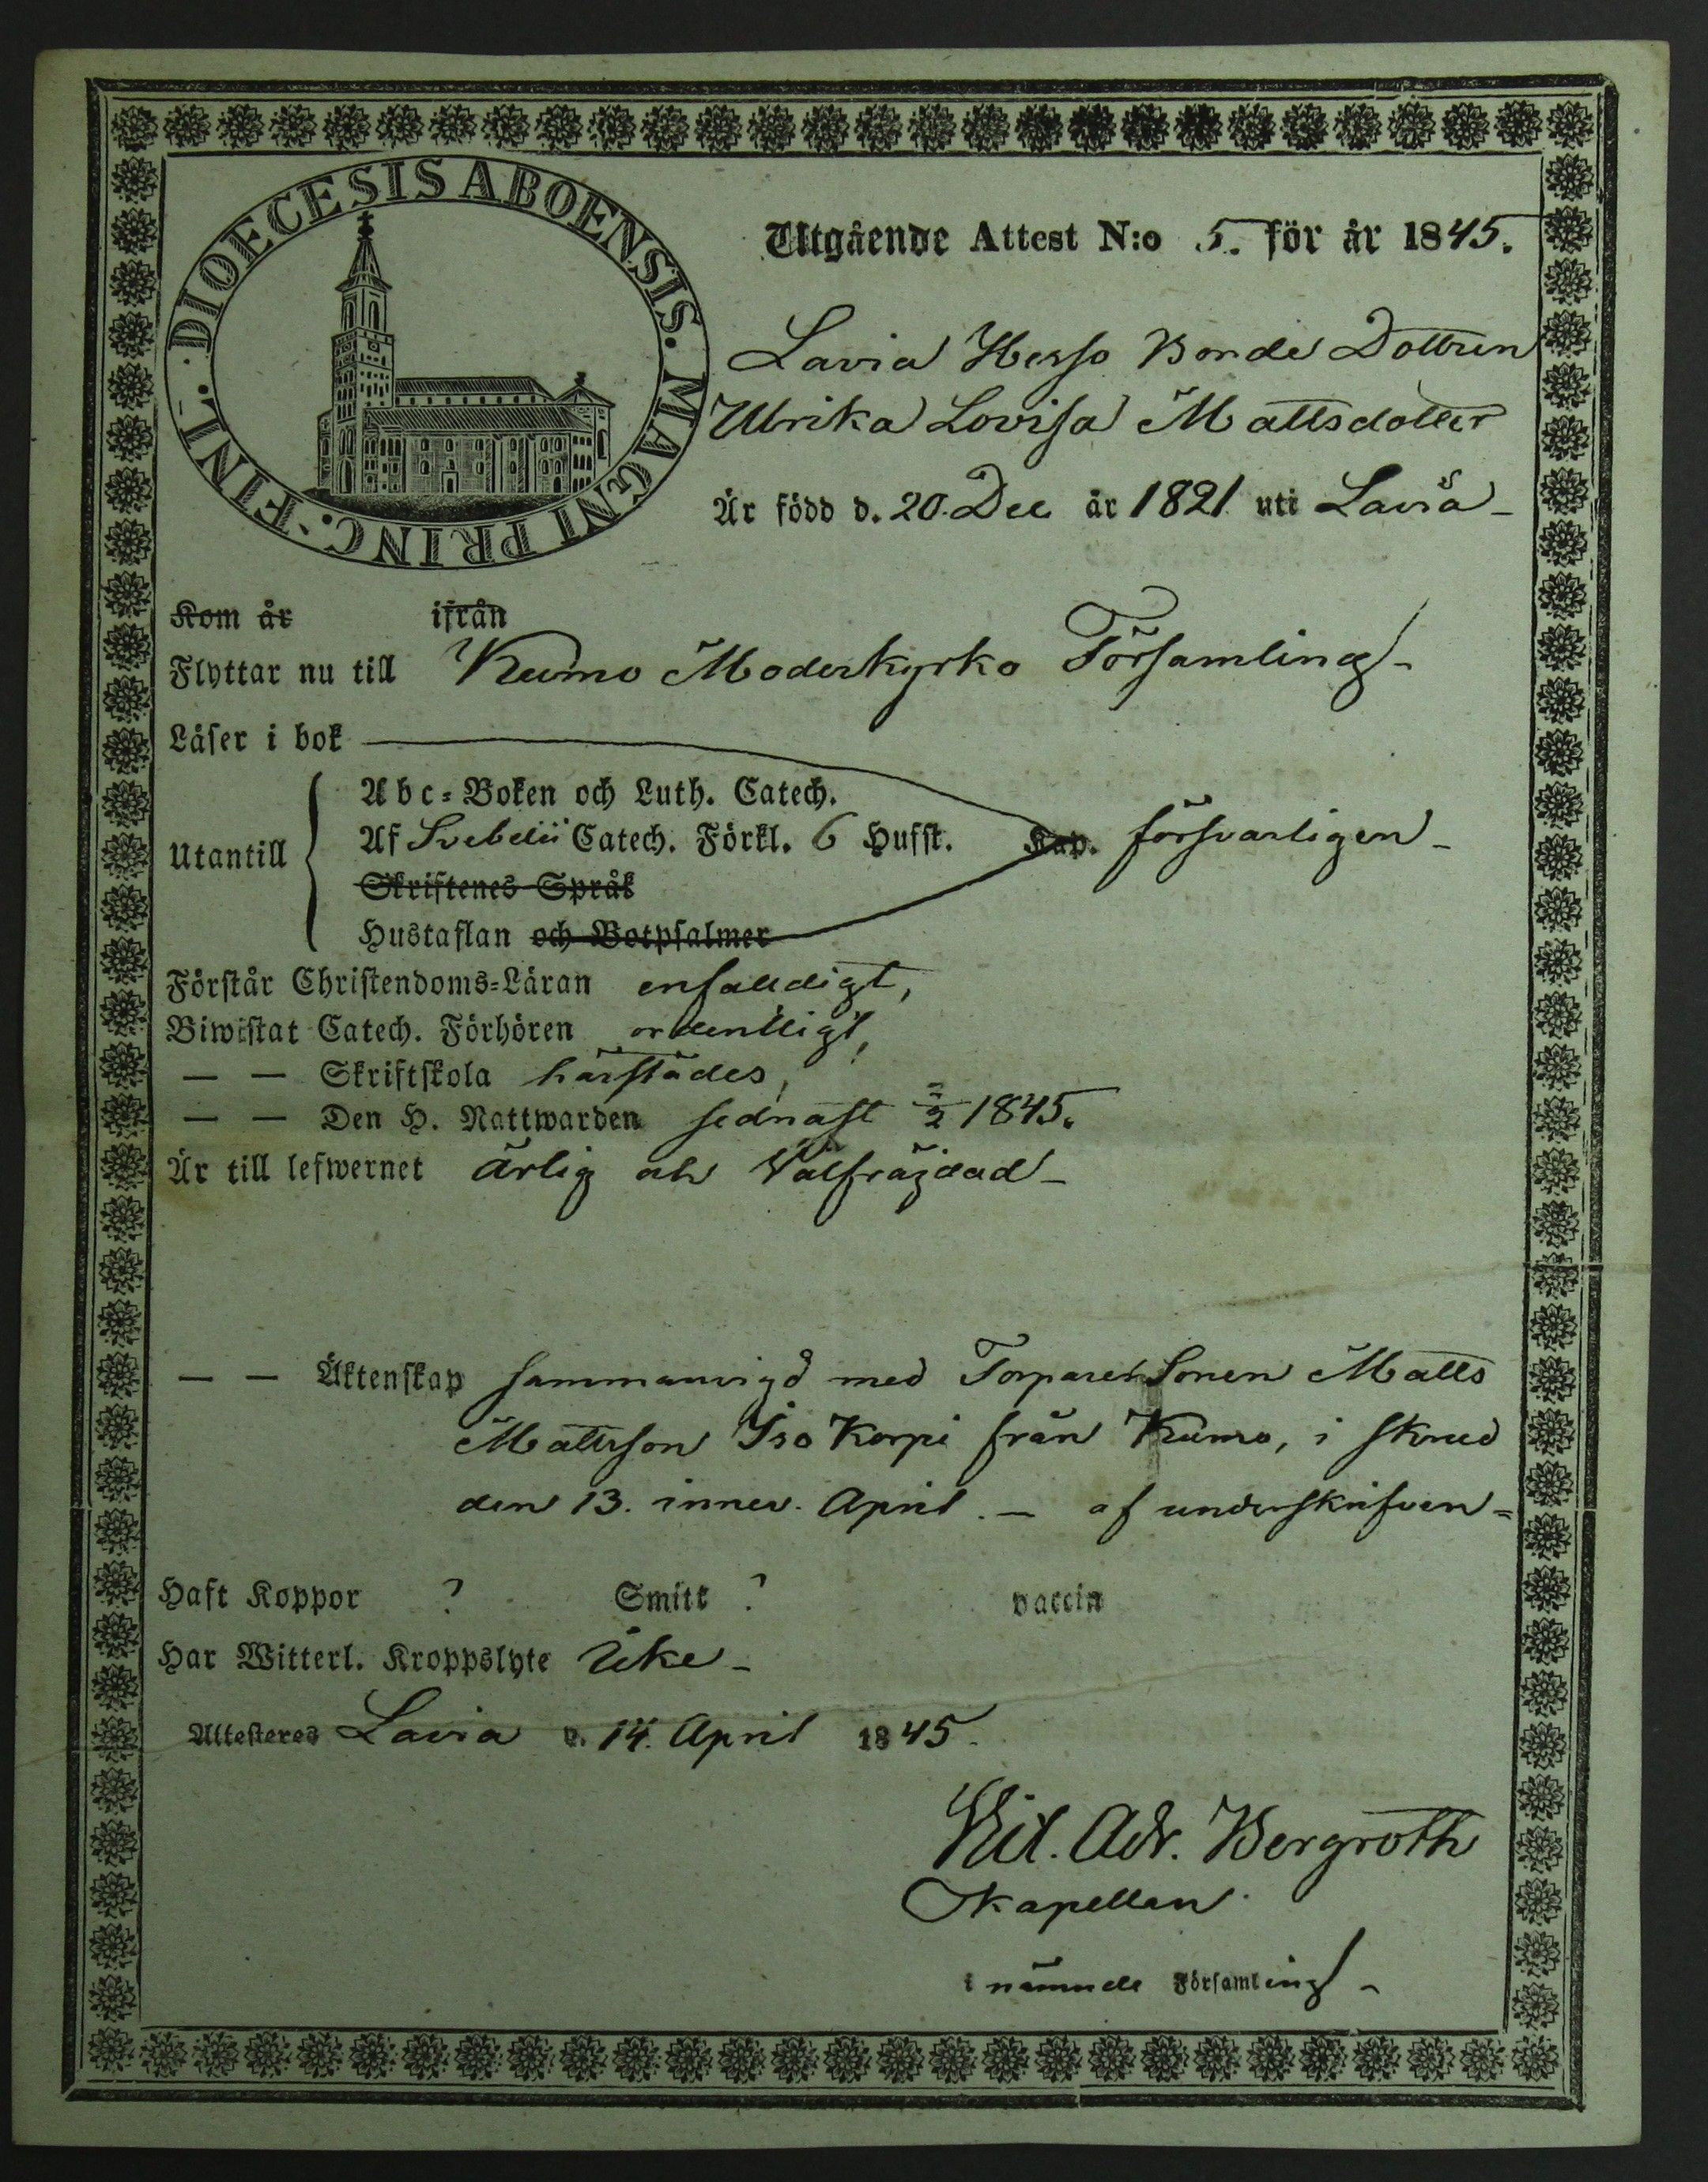 DIOECESIS ABOENSIS. MAGNI PRINC. FINL.
Utgående Attest N:o 5. för år 1845.
Lavia Hesso Bonde Dottren
Ulrika Lovisa Mattsdotter
Är född d. 20. Dec år 1821 uti Lavia
Kom år ifrån
Flyttar nu till Kumo Moderkyrko Församling
Läser i bok
Abc-Boken och Luth. Catech.
Utantill Af Svebelii Catech. Förkl. 6 Hufst. Kap. försvarligen
Skriftenes Språk
Hustaflan och Botpsalmer
Förstår Christendoms-Läran enfaldigt,
Biwistat Catech. Förhören ordentligt,
— — Skriftskola härstädes,
— — Den H. Nattwarden sednast 2/2 1845.
Är till lefwernet ärlig och Välfräjdad
— — Äktenskap sammanvigd med Torpare Sonen Matts
Mattsson Iso Korpi från Kumo, i skrud
den 13. innev. April. — af underskrifven
Haft Koppor ? Smitt ? vaccin
Har Witterl. Kroppslyte Icke
Attesteres Lavia d. 14. April 1845.
Vil. Adr. Bergroth
Kapellan
i nämnde Församling